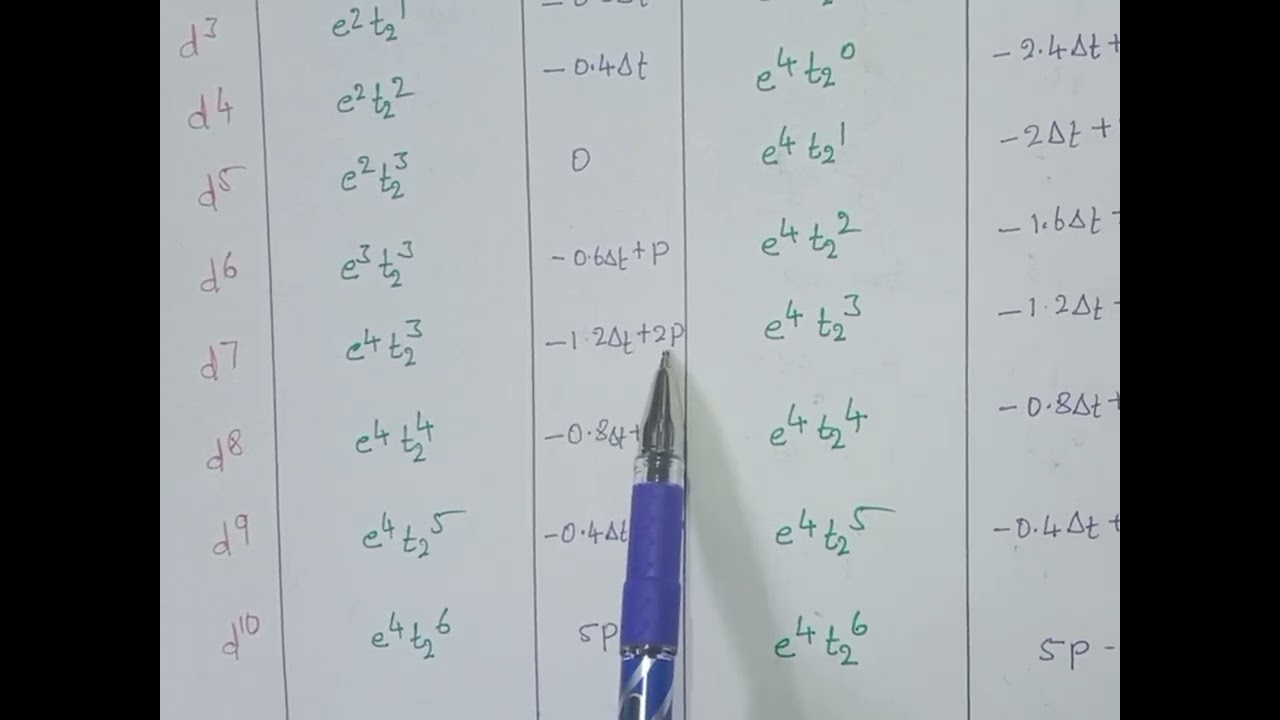 d³ e² t₂¹
d⁴ e² t₂² – 0.4Δt e⁴ t₂⁰ – 2.4Δt +
d⁵ e² t₂³ 0 e⁴ t₂¹ – 2Δt +
d⁶ e³ t₂³ – 0.6Δt + P e⁴ t₂² – 1.6Δt
d⁷ e⁴ t₂³ – 1.2Δt + 2P e⁴ t₂³ – 1.2Δt
d⁸ e⁴ t₂⁴ – 0.8Δt + e⁴ t₂⁴ – 0.8Δt +
d⁹ e⁴ t₂⁵ – 0.4Δt e⁴ t₂⁵ – 0.4Δt +
d¹⁰ e⁴ t₂⁶ 5P e⁴ t₂⁶ 5P –